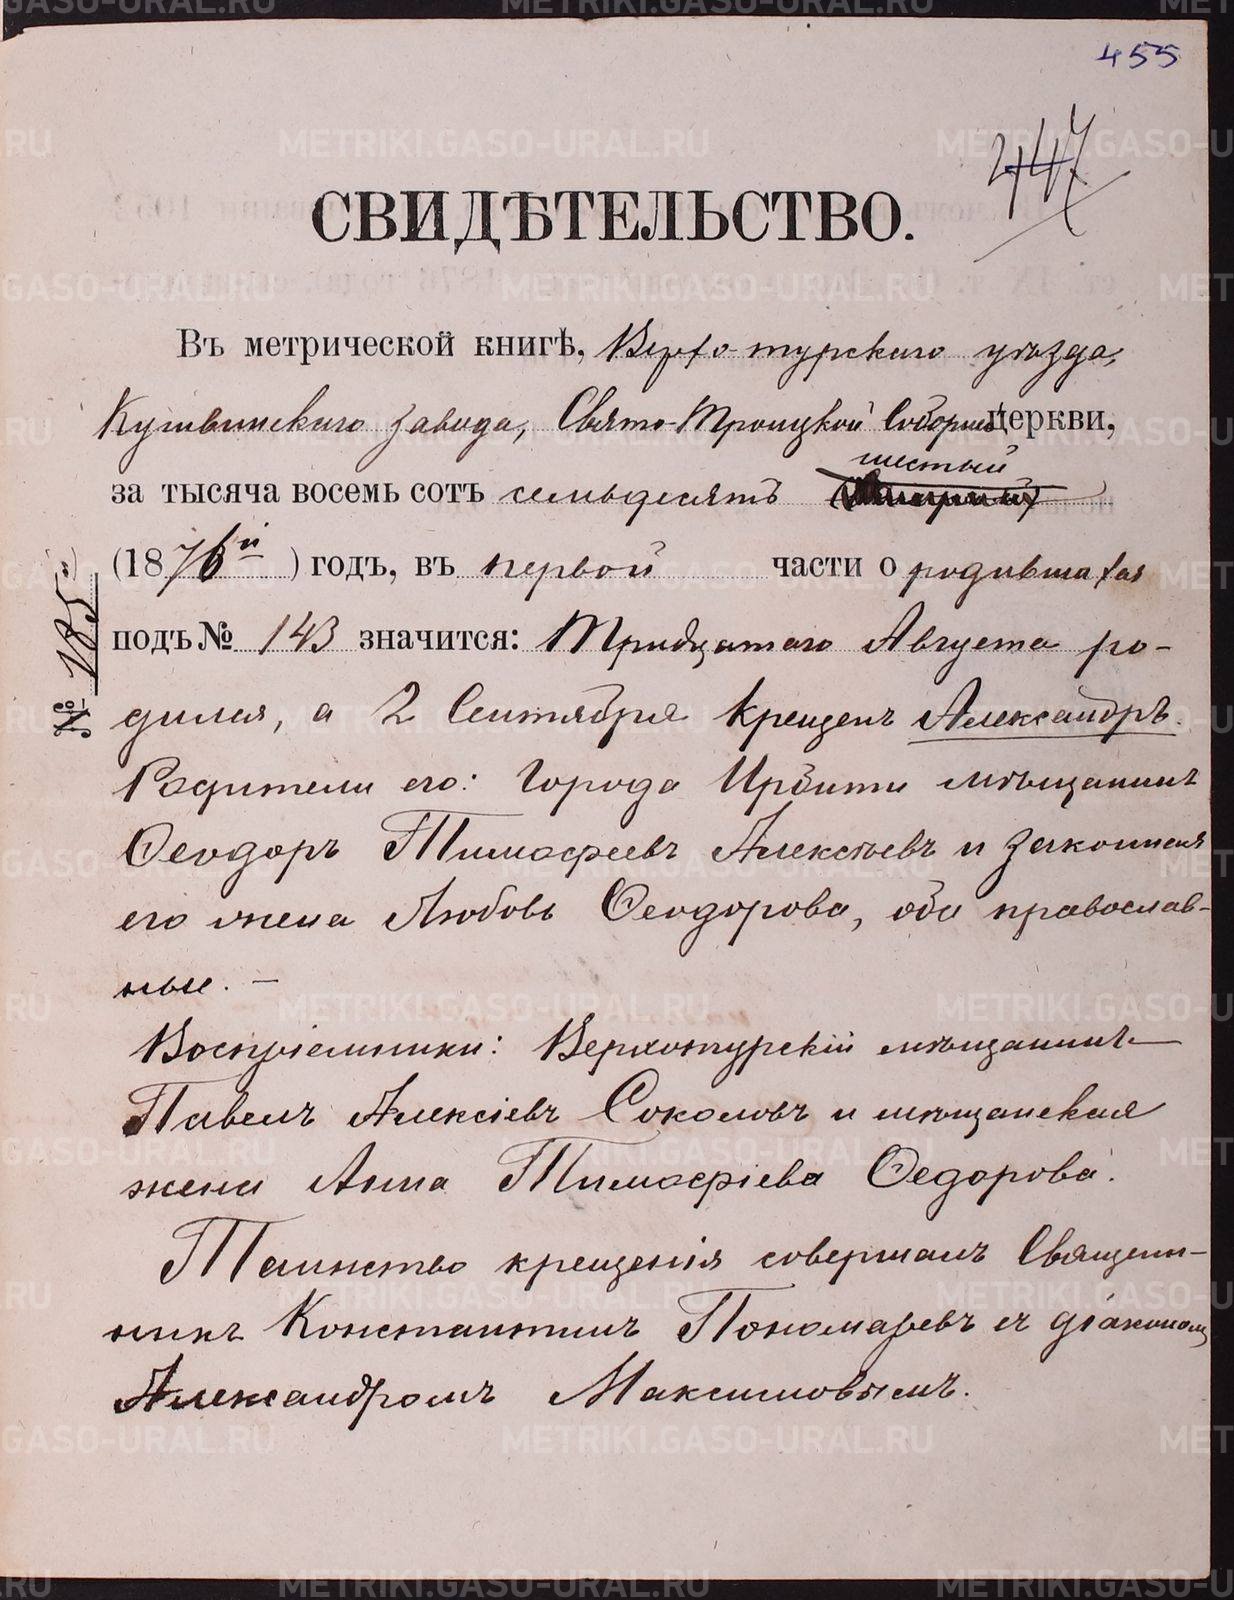 455
447
СВИДѢТЕЛЬСТВО.
Въ метрической книгѣ, Верхотурскаго уѣзда,
Кушвинскаго завода, Свято-Троицкой Соборной церкви,
шестый
за тысяча восемь сотъ семьдесятъ
(1876й) годъ, въ первой части о родившихся
подъ № 143 значится: Тридцатаго Августа ро-
дился, а 2 Сентября крещенъ Александръ.
Родители его: Города Ирбити мѣщанинъ
Ѳеодоръ Тимоѳеевъ Алексѣевъ и законная
его жена Любовь Ѳеодорова, оба православ-
ные. —
Воспріемники: Верхотурскій мѣщанинъ
Павелъ Алексіевъ Соколовъ и мѣщанская
жена Анна Тимоѳіева Ѳедорова.
Таинство крещенія совершалъ Священ-
никъ Константинъ Пономаревъ съ діакономъ
Александромъ Максимовымъ.
№ 185
METRIKI.GASO-URAL.RU